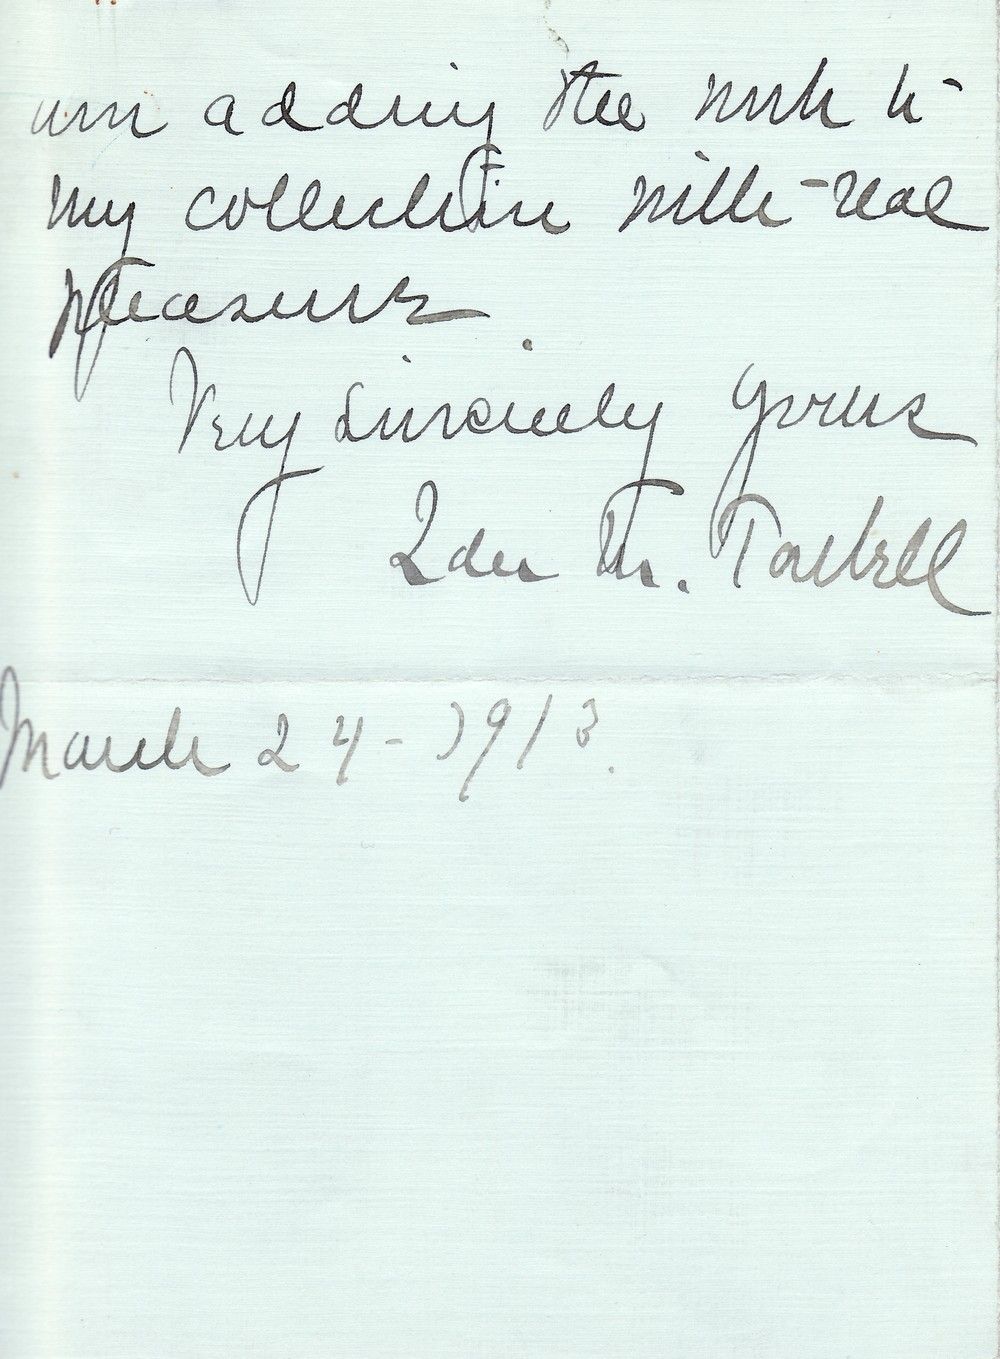 am adding the work to
my collection with real
pleasure
Very Sincerely yours
Ida M. Tarbell
March 24 - 1913.